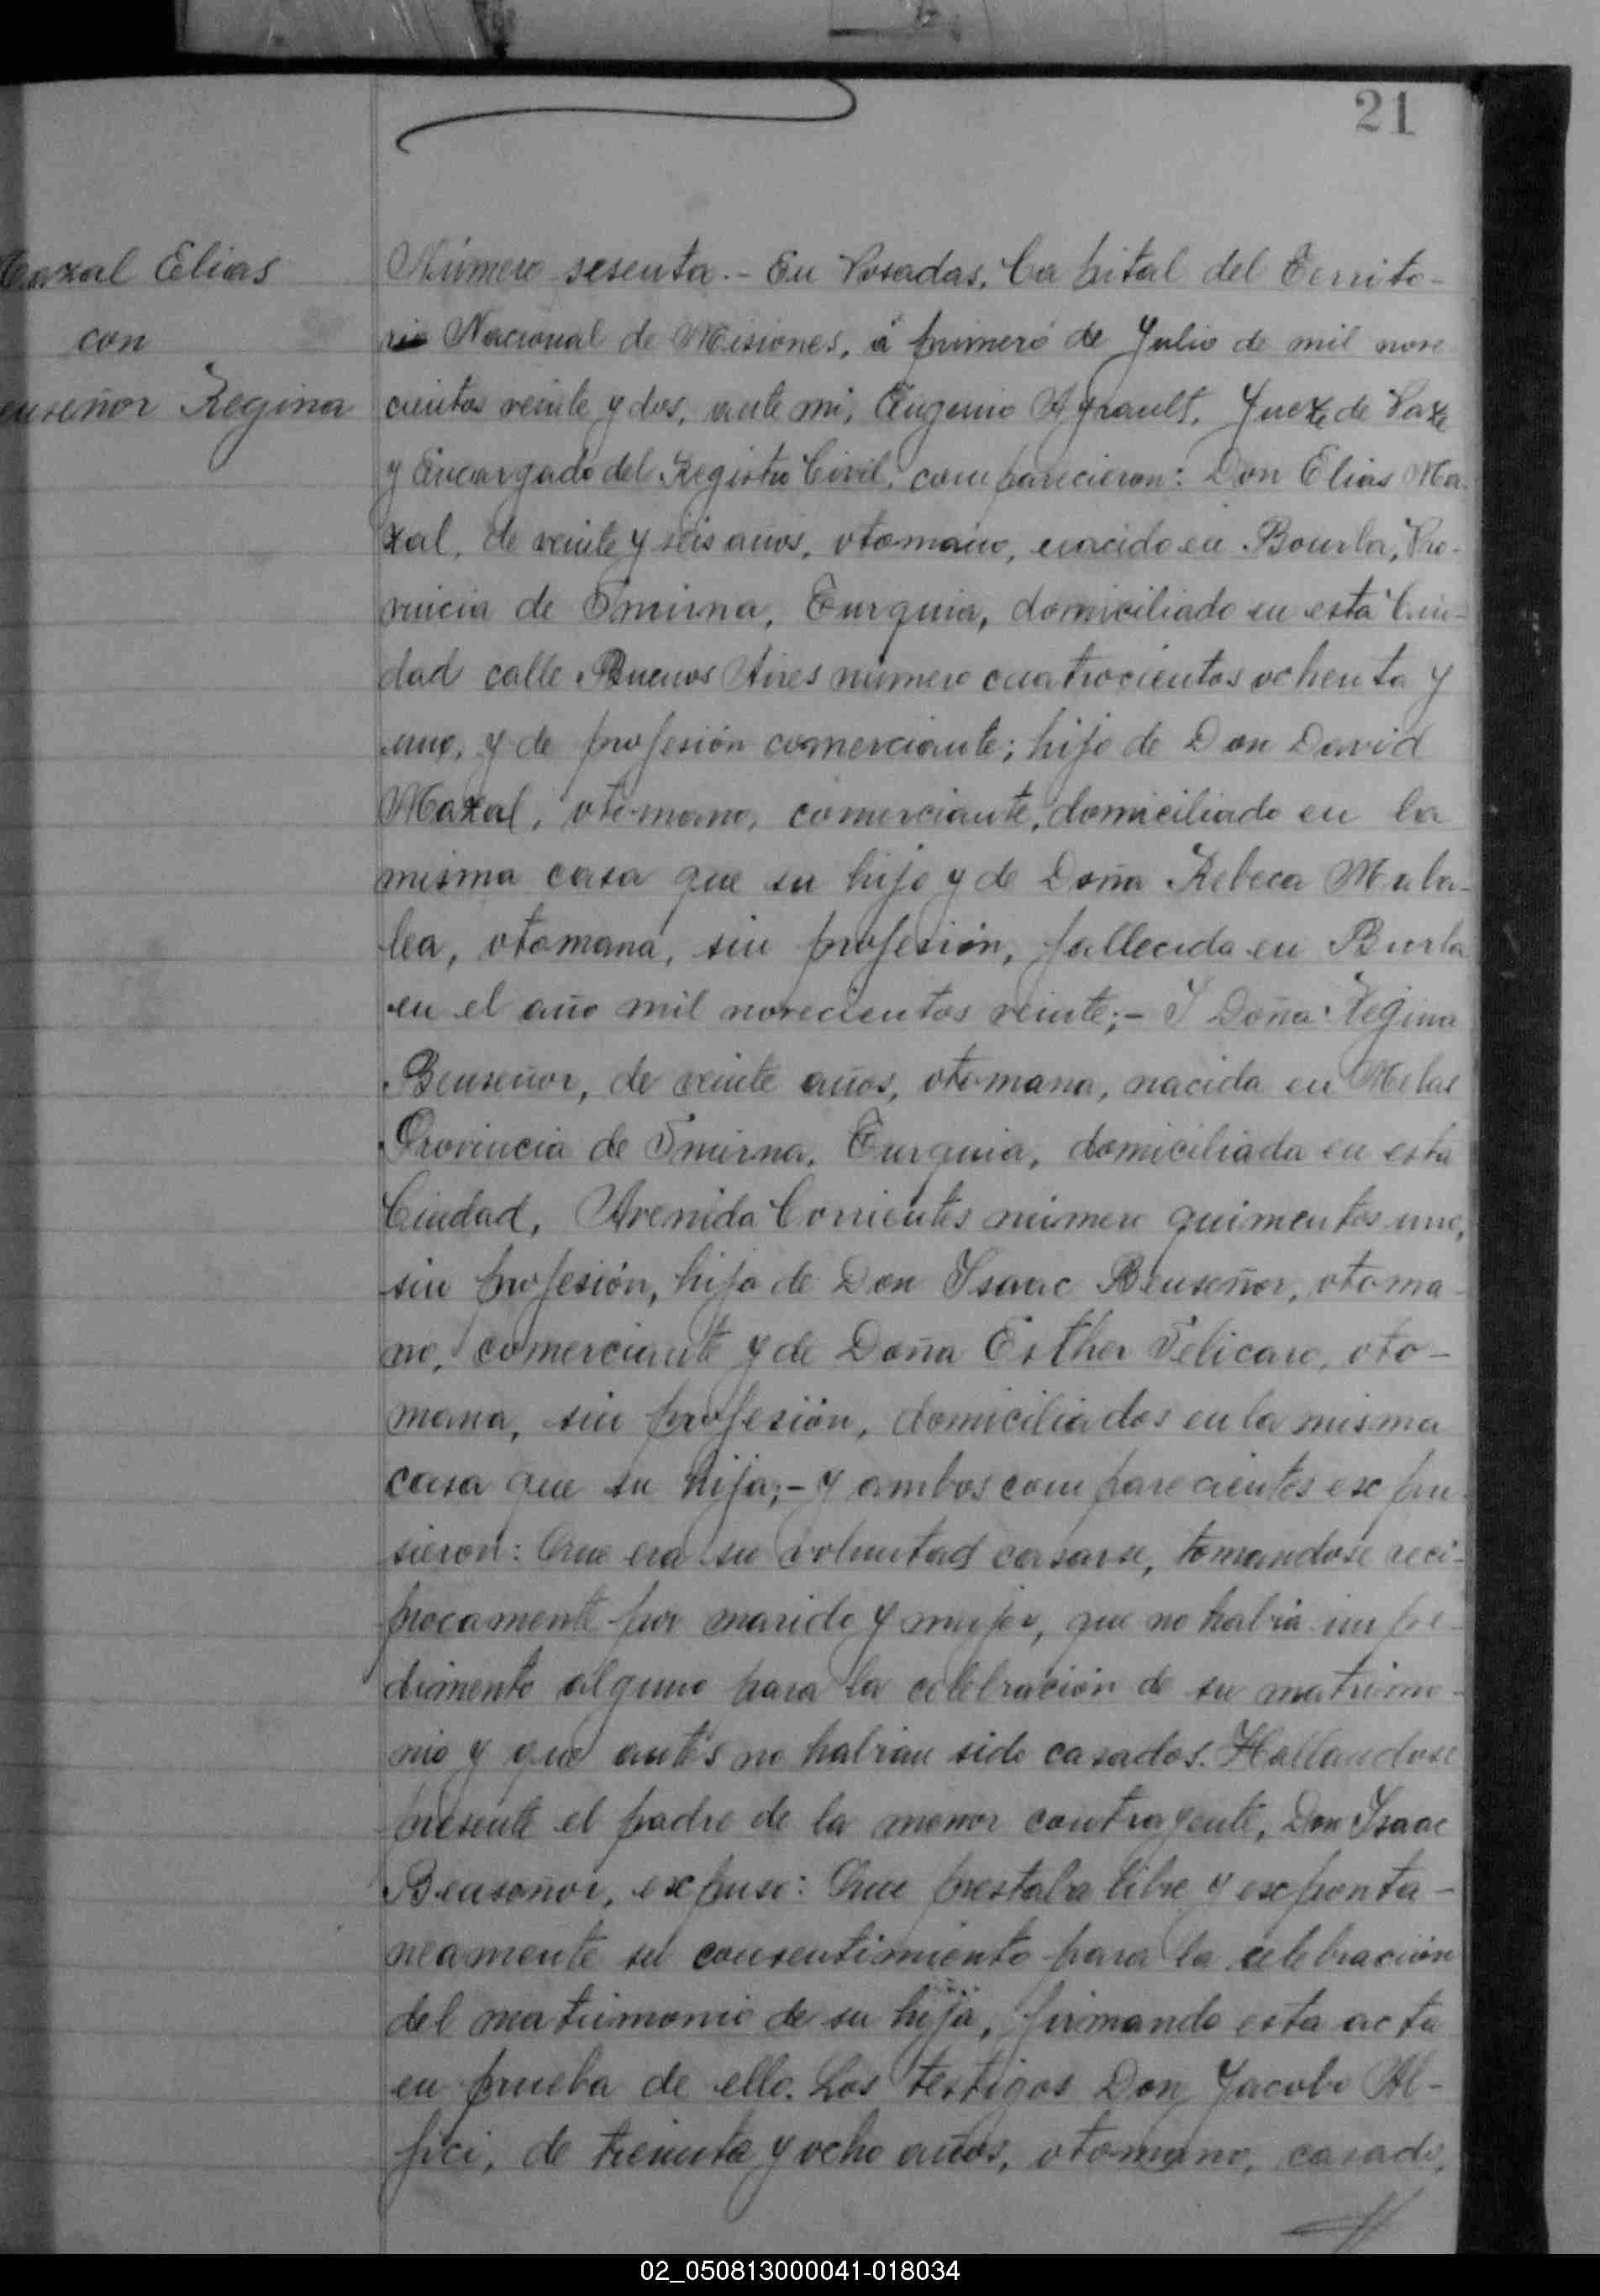 21
Mazal Elias
con
Benseñor Regina
Número sesenta.- En Posadas, Capital del Territo-
rio Nacional de Misiones, á primero de Julio de mil nove
cientos veinte y dos, ante mi, Eugenio Ayrault, Juez de Paz
y Encargado del Registro Civil, comparecieron: Don Elias Ma-
zal, de veinte y seis años, otomano, nacido en Bourla, Pro-
vincia de Smirna, Turquia, domiciliado en esta Ciu-
dad calle Buenos Aires número cuatrocientos ochenta y
uno, y de profesión comerciante; hijo de Don David
Mazal, otomano, comerciante, domiciliado en la
misma casa que su hijo y de Doña Rebeca Maba-
lea, otomana, sin profesión, fallecida en Burla
en el año mil novecientos veinte;- Y Doña Regina
Benseñor, de veinte años, otomana, nacida en Melas
Provincia de Smirna, Turquia, domiciliada en esta
Ciudad, Avenida Corrientes número quinientos uno,
sin profesión, hija de Don Isaac Benseñor, otoma-
no, comerciante y de Doña Esther Felicaro, oto-
mana, sin profesión, domiciliados en la misma
casa que su hija;- y ambos comparecientes expu-
sieron: Que era su voluntad casarse, tomandose reci-
procamente por marido y mujer, que no habia impe-
dimento alguno para la celebración de su matrimo-
nio y que antes no habian sido casados. Hallandose
presente el padre de la menor contragente, Don Isaac
Benseñor, expuso: Que prestaba libre y exponta-
neamente su consentimiento para la celebración
del matrimonio de su hija, firmando esta acta
en prueba de ello. Los testigos Don Jacobo Al-
fici, de treinta y ocho años, otomano, casado,
02_050813000041-018034